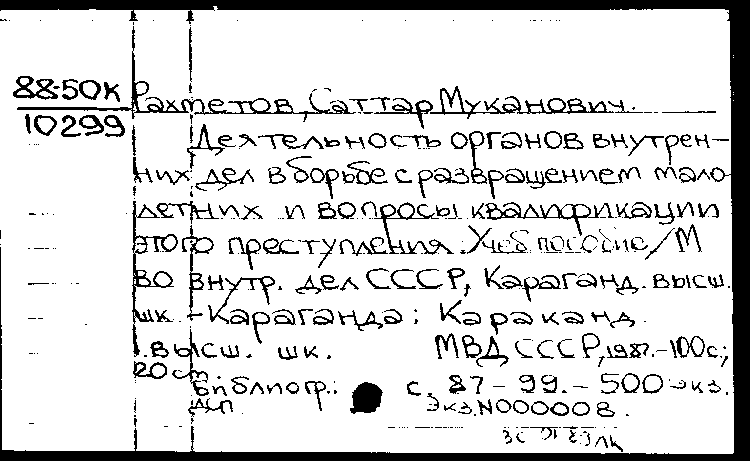 88-50К
10299
Рахметов, Саттар Муканович.
Деятельность органов внутрен-
них дел в борьбе с развращением мало
летних и вопросы квалификации
этого преступления: Учеб пособие/М
во внутр. дел СССР, Караганд. высш.
шк. - Караганда: Караканд.
.высш. шк. МВД СССР, 1987.-100с;
20 см.
Библиогр.: с. 87-99. - 500 экз.
дсп. Экз.N000008.